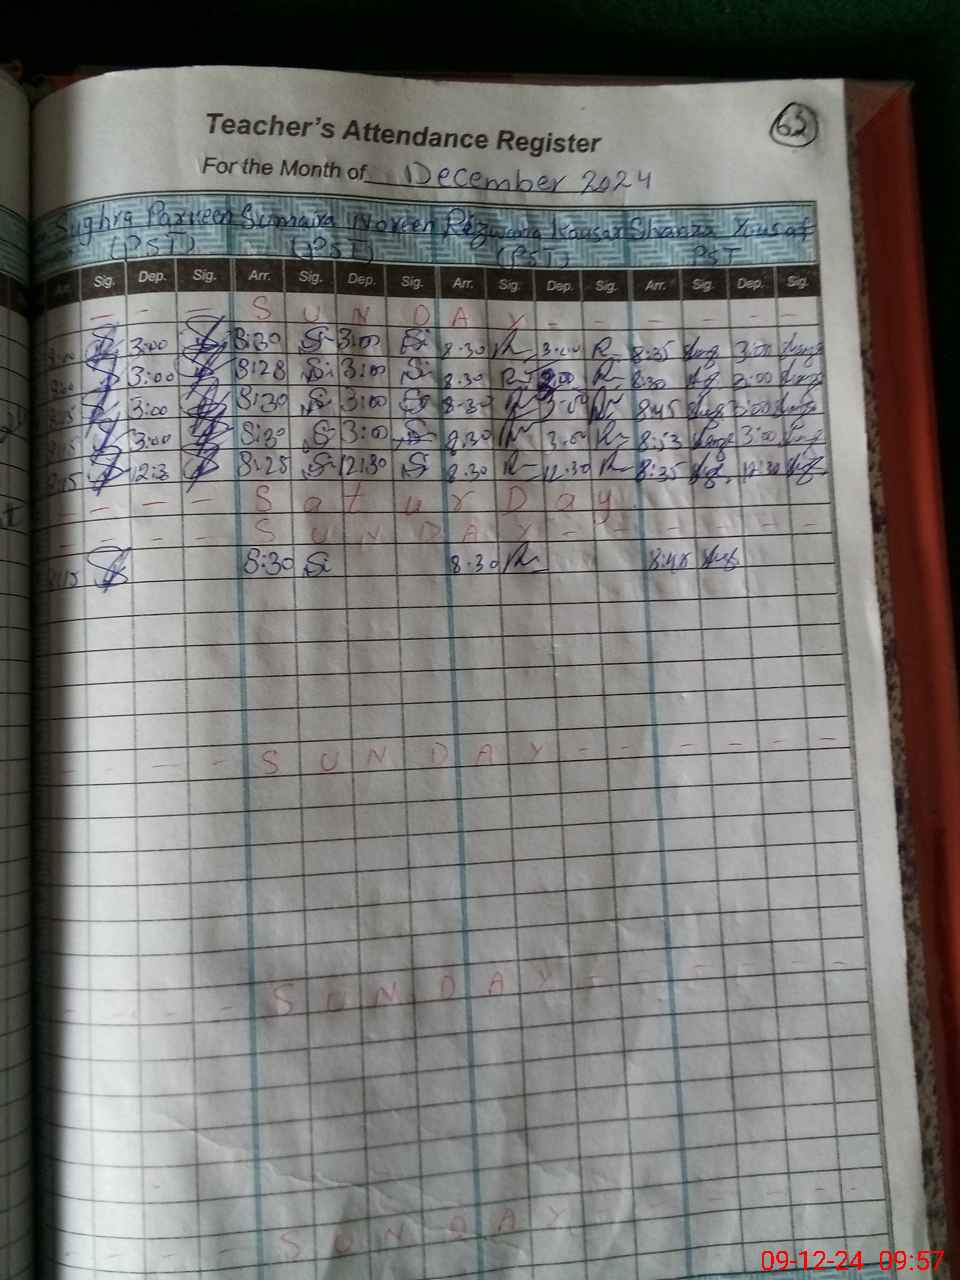 63
Teacher's Attendance Register
For the Month of December 2024
Sughra Parveen Sumaira Noreen Rizwana Kausar Shanza Yousaf
(PST) (PST) (PST) PST
Arr. Sig. Dep. Sig. Arr. Sig. Dep. Sig. Arr. Sig. Dep. Sig. Arr. Sig. Dep. Sig.
- - - S U N D A Y - - - - - -
3:00 8:30 3:00 8.30 3:00 8:35 3:00
3:00 8:28 3:00 8.30 3:00 8:30 3:00
3:00 8:30 3:00 8.30 3:00 8:45 3:00
3:00 8:30 3:00 8.30 3:00 8:53 3:00
8:15 12:3 8:25 12:30 8.30 12.30 8:35 12:30
- - - - S a t u r D a y
- - - - S U N D A Y - - - - - -
8:15 8:30 8.30 8:45
- - - - S U N D A Y - - - - - -
- - - - S U N D A Y - - - - - -
- - - - S U N D A Y - - - - - -
09-12-24 09:57